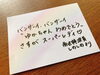 バンザーイ、バンザーイ
ゆかちゃん、おめでとう。
さすがスーパーレディ♡